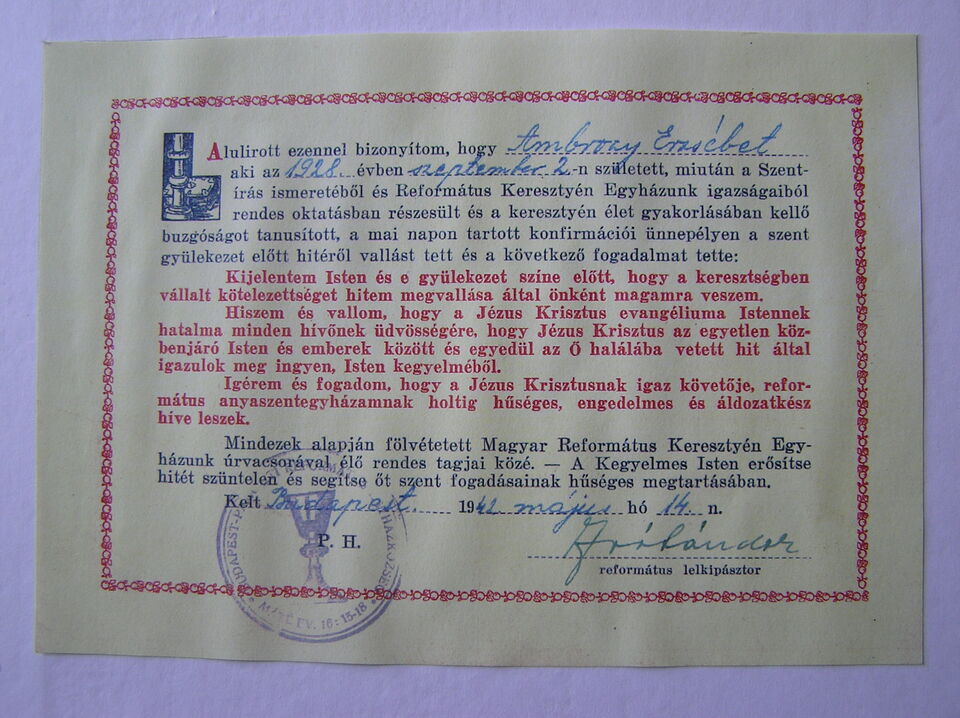 Alulirott ezennel bizonyítom, hogy Ambrozy Erzsébet
aki az 1928. évben szeptember 2.-n született, miután a Szent-
írás ismeretéből és Református Keresztyén Egyházunk igazságaiból
rendes oktatásban részesült és a keresztyén élet gyakorlásában kellő
buzgóságot tanusított, a mai napon tartott konfirmációi ünnepélyen a szent
gyülekezet előtt hitéről vallást tett és a következő fogadalmat tette:
Kijelentem Isten és e gyülekezet színe előtt, hogy a keresztségben
vállalt kötelezettséget hitem megvallása által önként magamra veszem.
Hiszem és vallom, hogy a Jézus Krisztus evangéliuma Istennek
hatalma minden hívőnek üdvösségére, hogy Jézus Krisztus az egyetlen köz-
benjáró Isten és emberek között és egyedül az Ő halálába vetett hit által
igazulok meg ingyen, Isten kegyelméből.
Igérem és fogadom, hogy a Jézus Krisztusnak igaz követője, refor-
mátus anyaszentegyházamnak holtig hűséges, engedelmes és áldozatkész
híve leszek.
Mindezek alapján fölvétetett Magyar Református Keresztyén Egy-
házunk úrvacsorával élő rendes tagjai közé. — A Kegyelmes Isten erősítse
hitét szüntelen és segítse őt szent fogadásainak hűséges megtartásában.
Kelt Budapest. 1942 május hó 14. n.
P. H.
református lelkipásztor
BUDAPEST-
MÁTÉ EV. 16:15-18